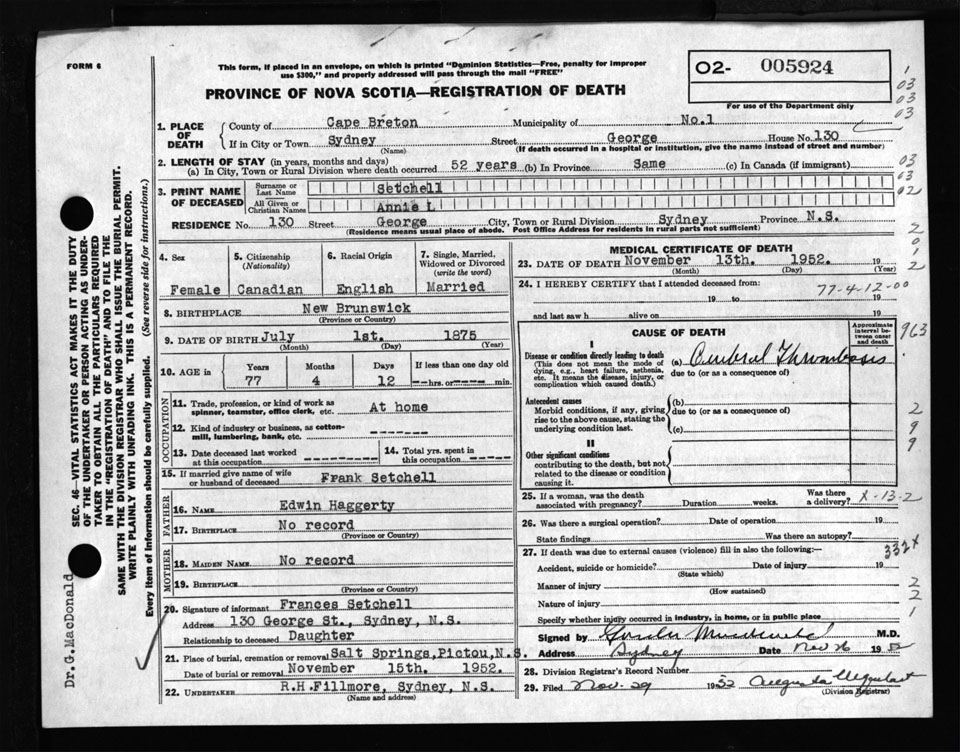 FORM 6
This form, if placed in an envelope, on which is printed "Dominion Statistics—Free, penalty for improper
use $300," and properly addressed will pass through the mail "FREE"
02- 005924
For use of the Department only
PROVINCE OF NOVA SCOTIA—REGISTRATION OF DEATH
1. PLACE OF DEATH
County of Cape Breton Municipality of No.1
If in City or Town Sydney Street George House No. 130
(Name) (If death occurred in a hospital or institution, give the name instead of street and number)
2. LENGTH OF STAY (in years, months and days)
(a) In City, Town or Rural Division where death occurred 52 years (b) In Province Same (c) In Canada (if immigrant)
3. PRINT NAME OF DECEASED
Surname or Last Name Setchell
All Given or Christian Names Annie L
RESIDENCE No. 130 Street George City, Town or Rural Division Sydney Province N.S.
(Residence means usual place of abode. Post Office Address for residents in rural parts not sufficient)
4. Sex Female
5. Citizenship (Nationality) Canadian
6. Racial Origin English
7. Single, Married, Widowed or Divorced (write the word) Married
8. BIRTHPLACE New Brunswick
(Province or Country)
9. DATE OF BIRTH July 1st. 1875
(Month) (Day) (Year)
10. AGE in Years 77 Months 4 Days 12 If less than one day old
hrs. or min.
OCCUPATION
11. Trade, profession, or kind of work as
spinner, teamster, office clerk, etc. At home
12. Kind of industry or business, as cotton-
mill, lumbering, bank, etc.
13. Date deceased last worked
at this occupation
14. Total yrs. spent in
this occupation
15. If married give name of wife
or husband of deceased Frank Setchell
FATHER
16. NAME Edwin Haggerty
17. BIRTHPLACE No record
(Province or Country)
MOTHER
18. MAIDEN NAME No record
19. BIRTHPLACE
(Province or Country)
20. Signature of informant Frances Setchell
Address 130 George St., Sydney, N.S.
Relationship to deceased Daughter
21. Place of burial, cremation or removal Salt Springs, Pictou, N.S.
Date of burial or removal November 15th. 1952.
22. UNDERTAKER R.H.Fillmore, Sydney, N.S.
(Name and address)
MEDICAL CERTIFICATE OF DEATH
23. DATE OF DEATH November 13th. 1952. 19
(Month) (Day) (Year)
24. I HEREBY CERTIFY that I attended deceased from:
77-4-12-00
19 to 19
and last saw h alive on 19
CAUSE OF DEATH
Approximate interval between onset and death
I
Disease or condition directly leading to death
(This does not mean the mode of
dying, e.g., heart failure, asthenia,
etc. It means the disease, injury, or
complication which caused death.)
(a) Cerebral Thrombosis
due to (or as a consequence of)
Antecedent causes
Morbid conditions, if any, giving
rise to the above cause, stating the
underlying condition last.
(b)
due to (or as a consequence of)
(c)
II
Other significant conditions
contributing to the death, but not
related to the disease or condition
causing it.
25. If a woman, was the death
associated with pregnancy? Duration weeks. Was there
a delivery? X-13-2
26. Was there a surgical operation? Date of operation 19
State findings Was there an autopsy?
27. If death was due to external causes (violence) fill in also the following:—
332X
Accident, suicide or homicide? Date of injury 19
(State which)
Manner of injury
(How sustained)
Nature of injury
Specify whether injury occurred in industry, in home, or in public place
Signed by M.D.
Address Sydney Date Nov 26 1952
28. Division Registrar's Record Number
29. Filed Nov. 29 1952 Augusta
(Division Registrar)
1
03
03
03
03
03
02
2
0
1
2
963
2
9
9
2
2
1
SEC. 46—VITAL STATISTICS ACT MAKES IT THE DUTY
OF THE UNDERTAKER OR PERSON ACTING AS UNDER-
TAKER TO OBTAIN ALL THE PARTICULARS REQUIRED
IN THE "REGISTRATION OF DEATH" AND TO FILE THE
SAME WITH THE DIVISION REGISTRAR WHO SHALL ISSUE THE BURIAL PERMIT.
WRITE PLAINLY WITH UNFADING INK. THIS IS A PERMANENT RECORD.
Every item of information should be carefully supplied. (See reverse side for instructions.)
Dr.G.MacDonald